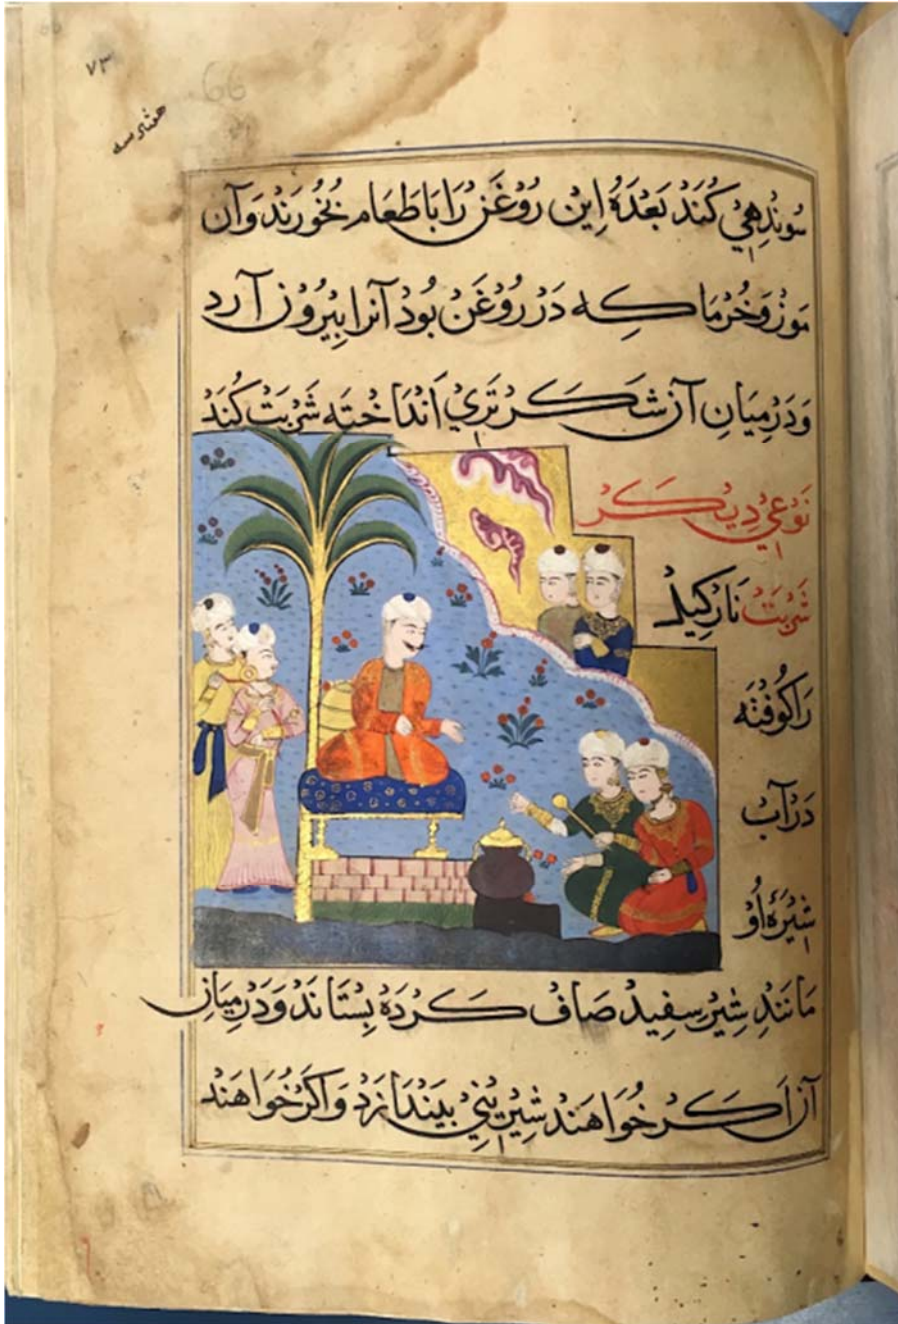 ۷۳
66
سُونْدِهِيْ كُنَنْد بَعْدَهُ اِيْن رُوْغَنْ رَا بَا طَعَام بُخُورَنْد وَ آن
مَوْز وَ خُرْمَا كِه دَرْ رُوْغَنْ بُوْد آنرا بِيْرُوْن آرد
وَ دَرْمِيَانِ آن شَكَرْ تَرِيْ اَنْدَاخْتَه شَرْبَتْ كُنَنْد
نَوْعِيْ دِيْگَرْ
شَرْبَتْ نَارْگِيْل
رَا كُوْفْتَه
دَرْ آبْ
شِيْرَهُٔ اُوْ
مَانَنْدِ شِيْرِ سِفِيْد صَافْ كَرْدَهْ بِسْتَانَنْد وَ دَرْمِيَانِ
آن اَگَرْ خُوَاهَنْد شِيْرِيْنِيْ بِيَنْدَازَنْد وَ اَگَرْ خُوَاهَنْد